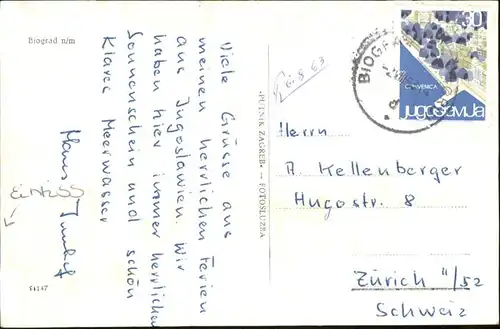 Biograd n/m
Viele Grüsse aus
meinen herrlichen Ferien
aus Jugoslawien. Wir
haben hier immer herrlichen
Sonnenschein und schön
klares Meerwasser
Hans
54147
»PUTNIK ZAGREB« — FOTOSLUŽBA
6.8.63
BIOGRA
30
CRIKVENICA
jugoslavija
Herrn
A. Kellenberger
Hugostr. 8
Zürich 11/52
Schweiz